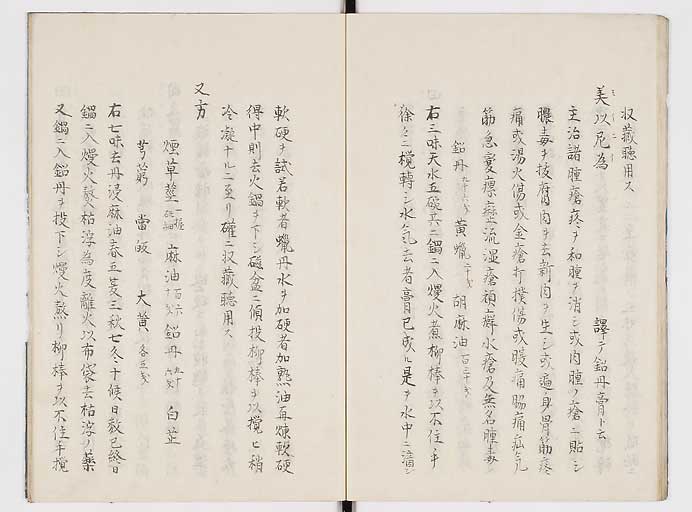 収蔵聴用ス
美以尼為 譯テ鉛丹膏ト云
主治諸腫瘡疼ヲ和腫ヲ消シ或肉腫ノ瘡ニ貼シ
膿毒ヲ抜腐肉ヲ去新肉ヲ生シ或遍身骨筋疼
痛或湯火傷或金瘡打撲傷或腰痛脇痛疝気
筋急攣瘰癧流湿瘡頑癬水瘡及無名腫毒
鉛丹 黄蠟 胡麻油 百二十匁
右三味天水五碗共ニ鍋ニ入慢火煮柳棒ヲ以不住ニ手
徐々ニ攪轉シ水気去者膏已成ル是ヲ水中ニ滴シ
軟硬ヲ試若軟者蠟丹水ヲ加硬者加熟油再煉軟硬
得中則去火鍋ヲ下シ磁盆ニ傾投柳棒ヲ以攪ヒ稍
冷凝ナルニ至リ礶ニ収蔵聴用ス
又方
煙草莖 麻油 鉛丹 白芷
芎藭 當皈 大黄 各五匁
右七味去丹浸麻油春五夏三秋七冬十候日数已終日
鍋ニ入慢火熬枯浮為度離火以布袋去枯浮ノ薬
又鍋ニ入鉛丹ヲ投下シ慢火熬リ柳棒ヲ以不住手攪